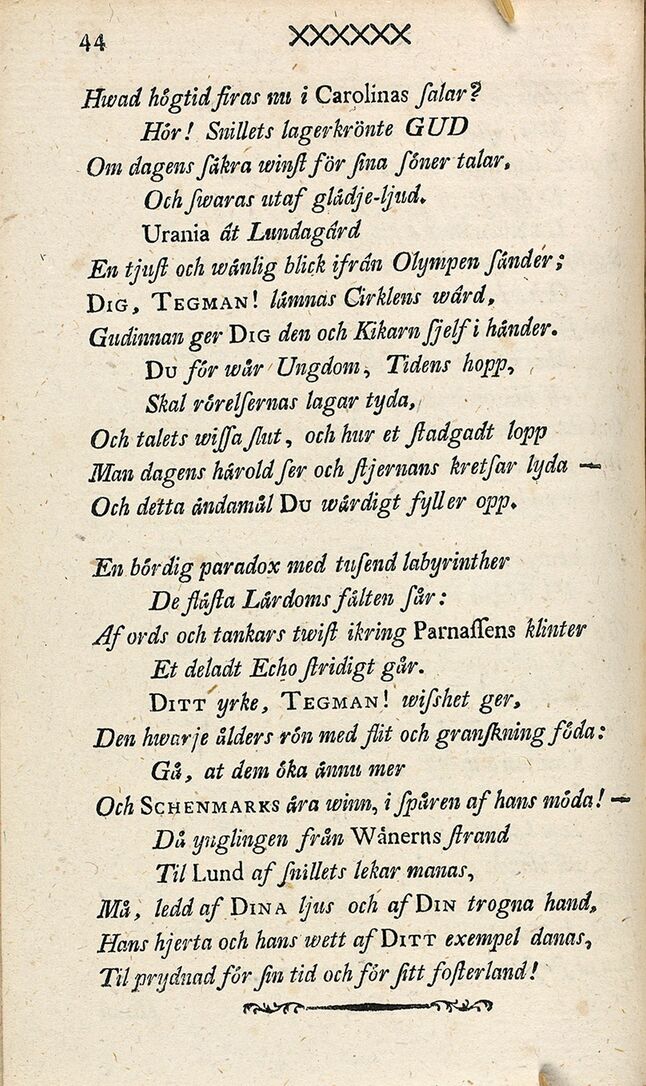 44 XXXXXX
Hwad högtid firas nu i Carolinas ſalar?
Hör! Snillets lagerkrönte GUD
Om dagens ſäkra winſt för ſina ſöner talar,
Och ſwaras utaf glädje-ljud.
Urania åt Lundagård
En tjuſt och wänlig blick ifrån Olympen ſänder;
DIG, TEGMAN! lämnas Cirklens wård,
Gudinnan ger DIG den och Kikarn ſjelf i händer.
DU för wår Ungdom, Tidens hopp,
Skal rörelſernas lagar tyda,
Och talets wiſſa ſlut, och hur et ſtadgadt lopp
Man dagens härold ſer och ſtjernans kretſar lyda —
Och detta ändamål DU wärdigt fyller opp.
En bördig paradox med tuſend labyrinther
De fläſta Lärdoms fälten ſår:
Af ords och tankars twiſt ikring Parnaſſens klinter
Et deladt Echo ſtridigt går.
DITT yrke, TEGMAN! wiſshet ger,
Den hwarje ålders rön med flit och granſkning föda:
Gå, at dem öka ännu mer
Och SCHENMARKS ära winn, i ſpåren af hans möda! —
Då ynglingen från Wänerns ſtrand
Til Lund af ſnillets lekar manas,
Må, ledd af DINA ljus och af DIN trogna hand,
Hans hjerta och hans wett af DITT exempel danas,
Til prydnad för ſin tid och för ſitt foſterland!